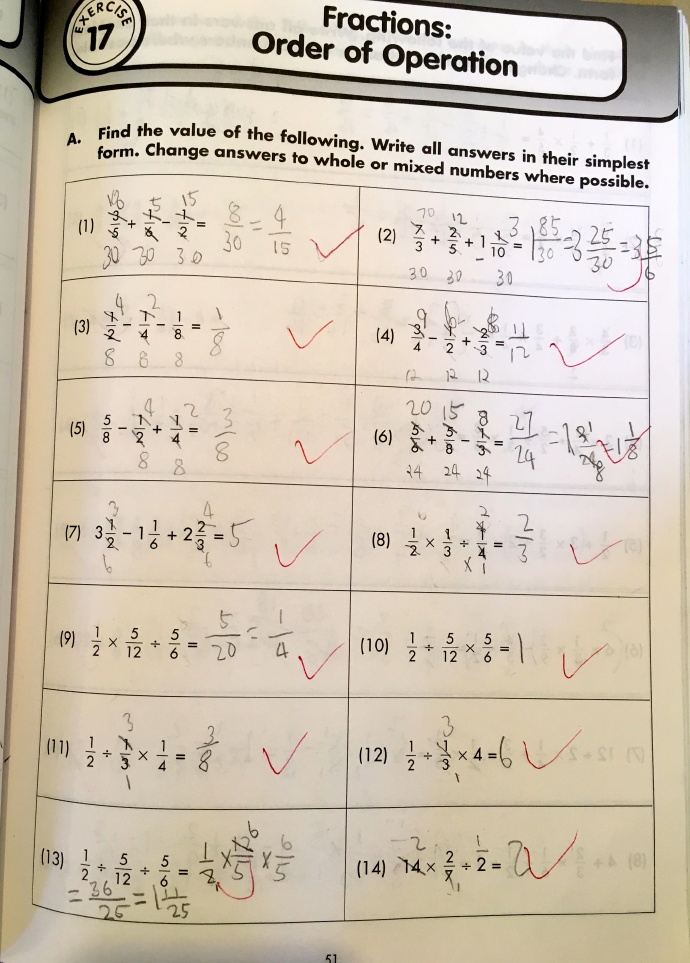 EXERCISE
17
Fractions:
Order of Operation
A. Find the value of the following. Write all answers in their simplest
form. Change answers to whole or mixed numbers where possible.
18 5 15
(1) 3/5 + 1/6 - 1/2 = 8/30 = 4/15
30 30 30
70 12 3
(2) 7/3 + 2/5 + 1 1/10 = 1 85/30 = 3 25/30 = 3 5/6
30 30 30
4 2
(3) 1/2 - 1/4 - 1/8 = 1/8
8 8 8
9 6 8
(4) 3/4 - 1/2 + 2/3 = 11/12
12 12 12
4 2
(5) 5/8 - 1/2 + 1/4 = 3/8
8 8
20 15 8
(6) 5/6 + 5/8 - 1/3 = 27/24 = 1 3/24 = 1 1/8
24 24 24
3 4
(7) 3 1/2 - 1 1/6 + 2 2/3 = 5
6 6
(8) 1/2 × 1/3 ÷ 1/4 = 2/3
× 1
(9) 1/2 × 5/12 ÷ 5/6 = 5/20 = 1/4
(10) 1/2 ÷ 5/12 × 5/6 = 1
3
(11) 1/2 ÷ 1/3 × 1/4 = 3/8
1
3
(12) 1/2 ÷ 1/3 × 4 = 6
1
(13) 1/2 ÷ 5/12 ÷ 5/6 = 1/2 × 12/5 × 6/5
= 36/25 = 1 11/25
2
(14) 14 × 2/7 ÷ 2 = 2
1
51